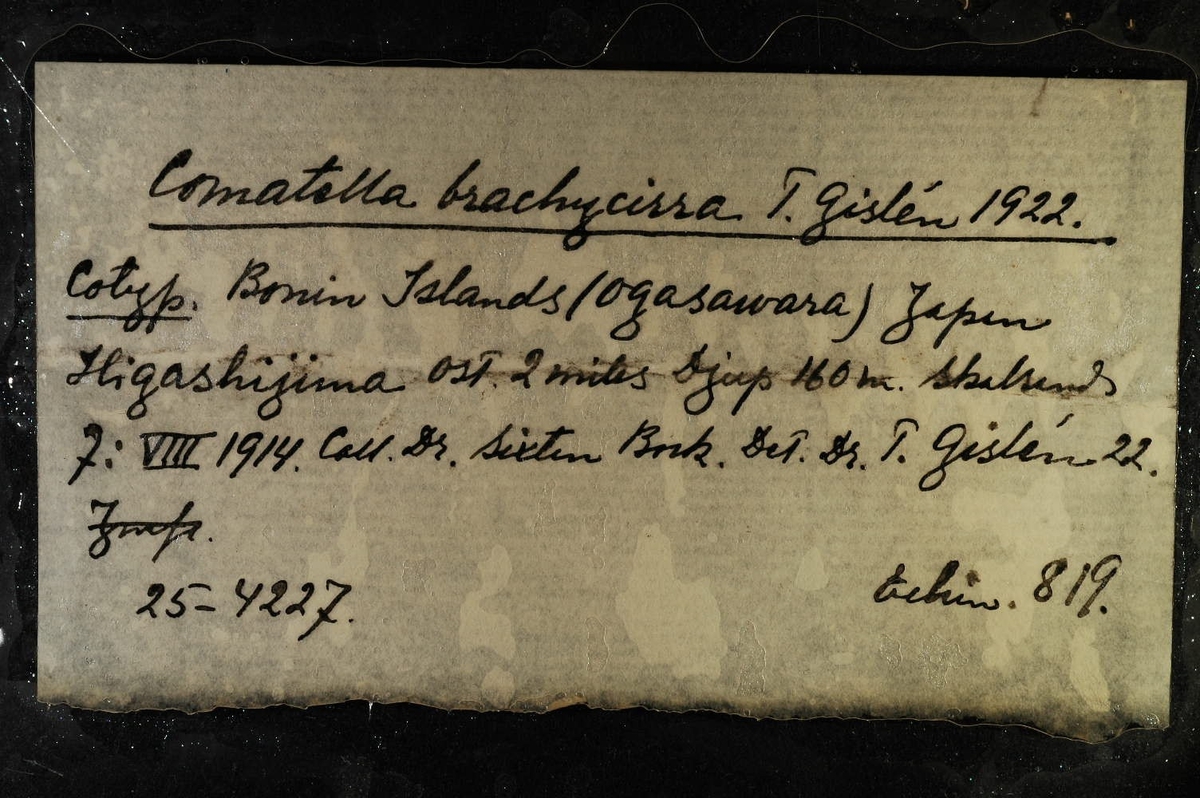 Comatella brachycirra T. Gislén 1922.
Cotyp. Bonin Islands (Ogasawara) Japan
Higashijima Ost. 2 miles Djup 160 m. Skalsand
7: VIII 1914. Coll. Dr. Sixten Bock. Det. Dr. T. Gislén 22.
25-4227. Echin. 819.